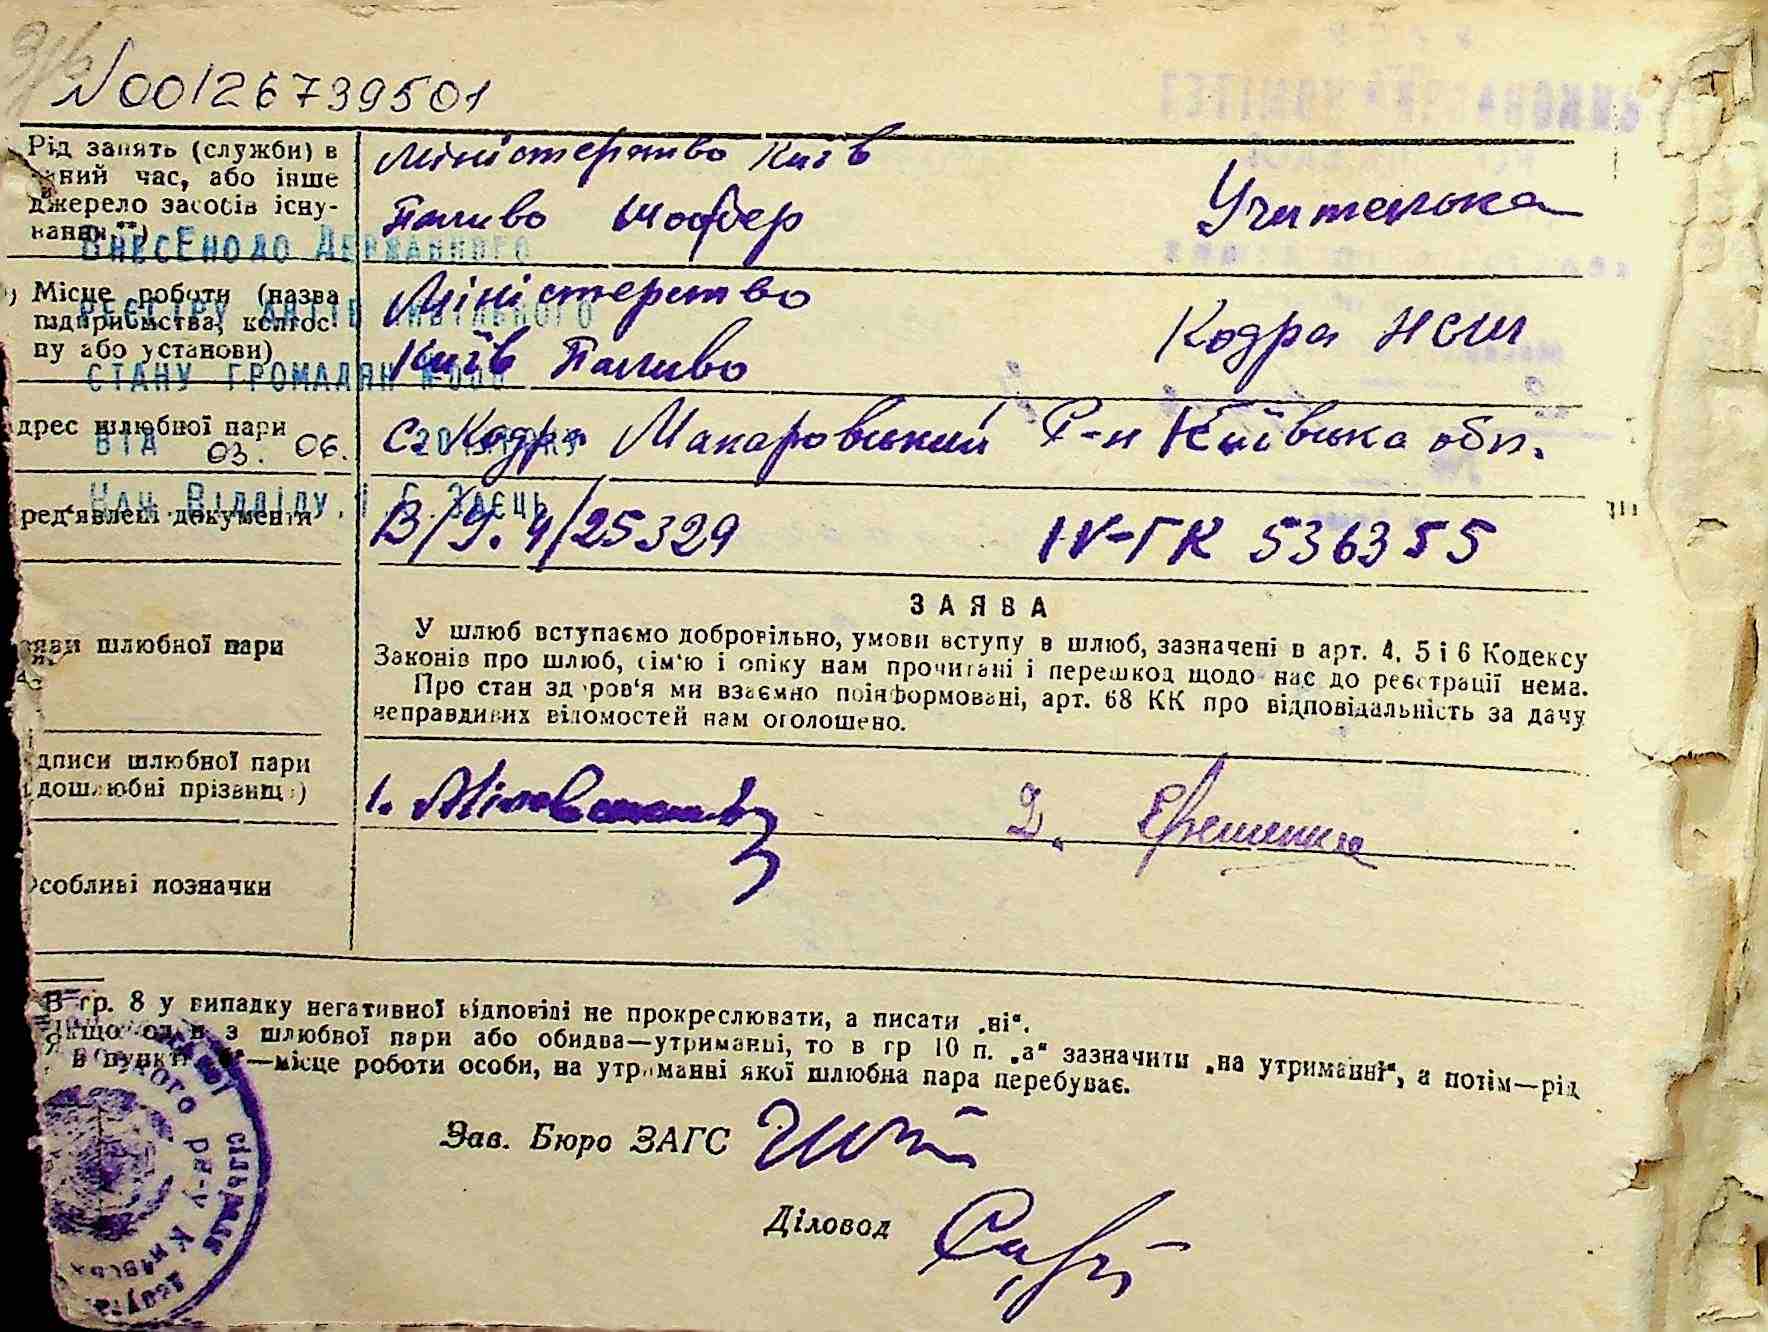 N00126739501
Рід занять (служби) в
даний час, або інше
джерело засобів існу-
вання **)
Міністерство Київ
Паливо шофер
Учителька
ВНЕСЕНО ДО ДЕРЖАВНОГО
РЕЄСТРУ АКТІВ ЦИВІЛЬНОГО
СТАНУ ГРОМАДЯН
ВІД 03. 06. 20
НАЧ. ВІДДІЛУ І. Є. ЗАЄЦЬ
) Місце роботи (назва
підприємства, колгос-
пу або установи)
Міністерство
Київ Паливо
Кодра НСШ
дрес шлюбної пари
с. Кодра Макаровський Р-н Київська обл.
ред'явлені документи
В/Ч. 4/25329
IV-ГК 536355
ЗАЯВА
У шлюб вступаємо добровільно, умови вступу в шлюб, зазначені в арт. 4, 5 і 6 Кодексу
Законів про шлюб, сім'ю і опіку нам прочитані і перешкод щодо нас до реєстрації нема.
Про стан здоров'я ми взаємно поінформовані, арт. 68 КК про відповідальність за дачу
неправдивих відомостей нам оголошено.
яви шлюбної пари
дписи шлюбної пари
дошлюбні прізвища)
1.
2.
собливі позначки
В гр. 8 у випадку негативної відповіді не прокреслювати, а писати „ні“.
Якщо один з шлюбної пари або обидва—утриманці, то в гр 10 п. „а“ зазначити „на утриманні“, а потім—рід
в пункті —місце роботи особи, на утриманні якої шлюбна пара перебуває.
Зав. Бюро ЗАГС
Діловод
сільська
р-у Київськ